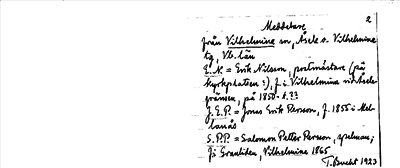 2
Meddelare
från Vilhelmina sn, Åsele o. Vilhelmina
tg, Vb. län
E.N. = Erik Nilsson, postmästare (på
kyrkplatsen?), f. i Vilhelmina vid Åsele-
gränsen, på 1850-t.??
J.E.P. = Jonas Erik Persson, f. 1855 i
S.P.P. = Salomon Petter Persson, spelman;
f. i Granliden, Vilhelmina 1865
T. Bucht 1923